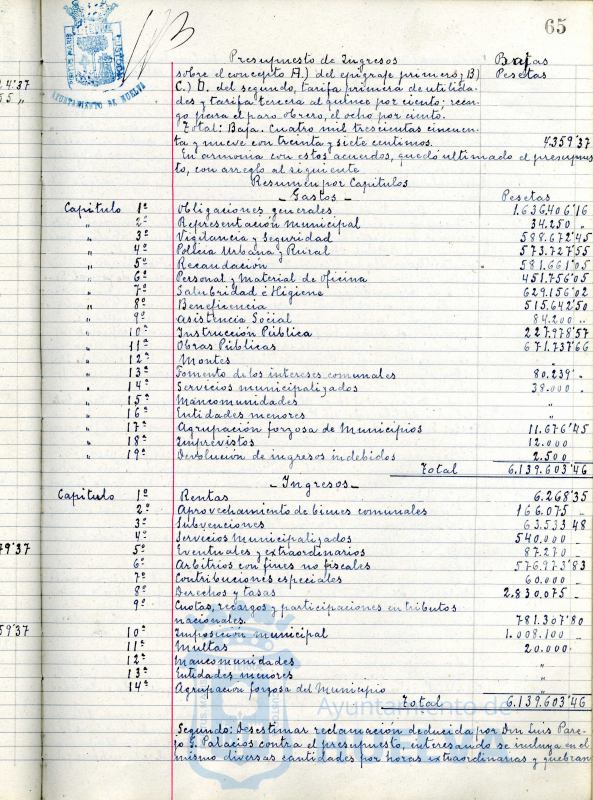 65
AYUNTAMIENTO DE HUELVA
Presupuesto de Ingresos Bajas
sobre el concepto A.) del epigrafe primero; B) Pesetas
C.) D. del segundo, tarifa primera de utilida-
des y tarifa tercera al quince por ciento; recar-
go para el paro obrero, el ocho por ciento.
Total: Baja. Cuatro mil trescientas cincuen-
ta y nueve con treinta y siete centimos. 4.359'37
En armonia con estos acuerdos, quedó ultimado el presupues
to, con arreglo al siguiente
Resumen por Capitulos
- Gastos - Pesetas
Capitulo 1º Obligaciones generales 1.636.406'16
" 2º Representación municipal 34.250 „
" 3º Vigilancia y Seguridad 588.672'45
" 4º Policia Urbana y Rural 573.727'55
" 5º Recaudación 581.661'05
" 6º Personal y Material de Oficina 451.756'05
" 7º Salubridad é Higiene 629.156'02
" 8º Beneficencia 515.642'50
" 9º Asistencia Social 84.200 „
" 10º Instrucción Pública 227.978'57
" 11º Obras Públicas 671.737'66
" 12º Montes "
" 13º Fomento de los intereses comunales 80.239' „
" 14º Servicios municipalizados 38.000 „
" 15º Mancomunidades "
" 16º Entidades menores "
" 17º Agrupación forzosa de Municipios 11.676'45
" 18º Imprevistos 12.000
" 19º Devolución de ingresos indebidos 2.500
Total 6.139.603'46
- Ingresos -
Capitulo 1º Rentas 6.268'35
2º Aprovechamiento de bienes comunales 166.075 „
3º Subvenciones 63.533 48
4º Servicios Municipalizados 540.000 „
5º Eventuales y extraordinarios 87.270 „
6º Arbitrios con fines no fiscales 576.973'83
7º Contribuciones especiales 60.000 „
8º Derechos y tasas 2.830.075 „
9º Cuotas, recargos y participaciones en tributos
nacionales. 781.307'80
10º Imposición municipal 1.008.100 „
11º Multas 20.000 „
12º Mancomunidades "
13º Entidades menores "
14º Agrupación forzosa del Municipio "
Total 6.139.603'46
Ayuntamiento de
Segundo: Desestimar reclamación deducida por Don Luis Pare-
jo G. Palacios contra el presupuesto, interesando se incluya en el
mismo diversas cantidades por horas extraordinarias y quebran